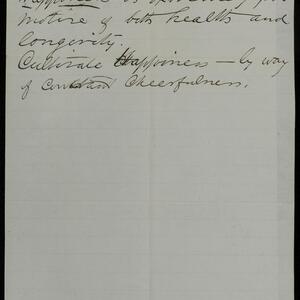 Happiness is
motive of both health and
longevity.
Cultivate Happiness — by way
of Constant Cheerfulness.